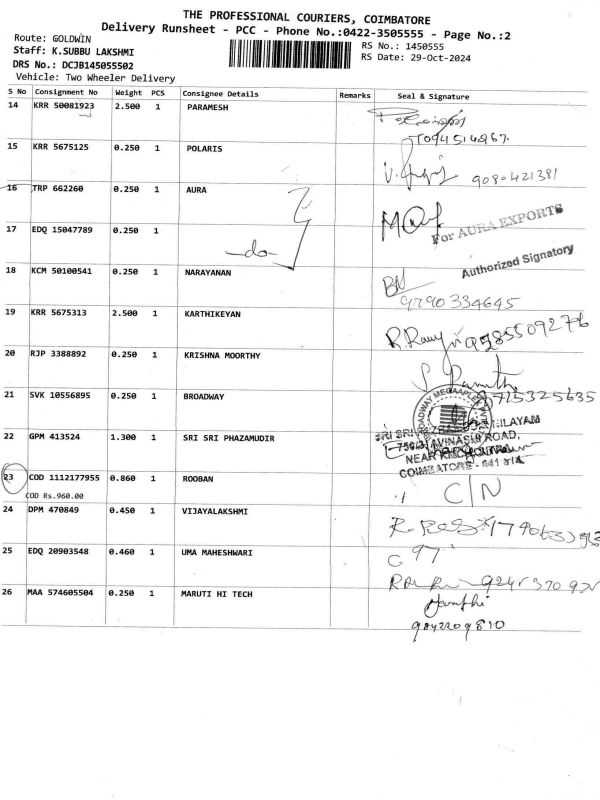 THE PROFESSIONAL COURIERS, COIMBATORE
Delivery Runsheet - PCC - Phone No.:0422-3505555 - Page No.:2
Route: GOLDWIN
RS No.: 1450555
Staff: K.SUBBU LAKSHMI
RS Date: 29-Oct-2024
DRS No.: DCJB145055502
Vehicle: Two Wheeler Delivery
S No Consignment No Weight PCS Consignee Details Remarks Seal & Signature
14 KRR 50081923 2.500 1 PARAMESH
15 KRR 5675125 0.250 1 POLARIS
9080421381
16 TRP 662260 0.250 1 AURA
For AURA EXPORTS
17 EDQ 15047789 0.250 1 -do-
Authorized Signatory
18 KCM 50100541 0.250 1 NARAYANAN
9790334645
19 KRR 5675313 2.500 1 KARTHIKEYAN
20 RJP 3388892 0.250 1 KRISHNA MOORTHY
21 SVK 10556895 0.250 1 BROADWAY
9715325635
22 GPM 413524 1.300 1 SRI SRI PHAZAMUDIR
AVINASHI ROAD,
COIMBATORE - 641
23 COD 1112177955 0.860 1 ROOBAN
C/N
COD Rs.960.00
24 DPM 470849 0.450 1 VIJAYALAKSHMI
25 EDQ 20903548 0.460 1 UMA MAHESHWARI
26 MAA 574605504 0.250 1 MARUTI HI TECH
9842209810